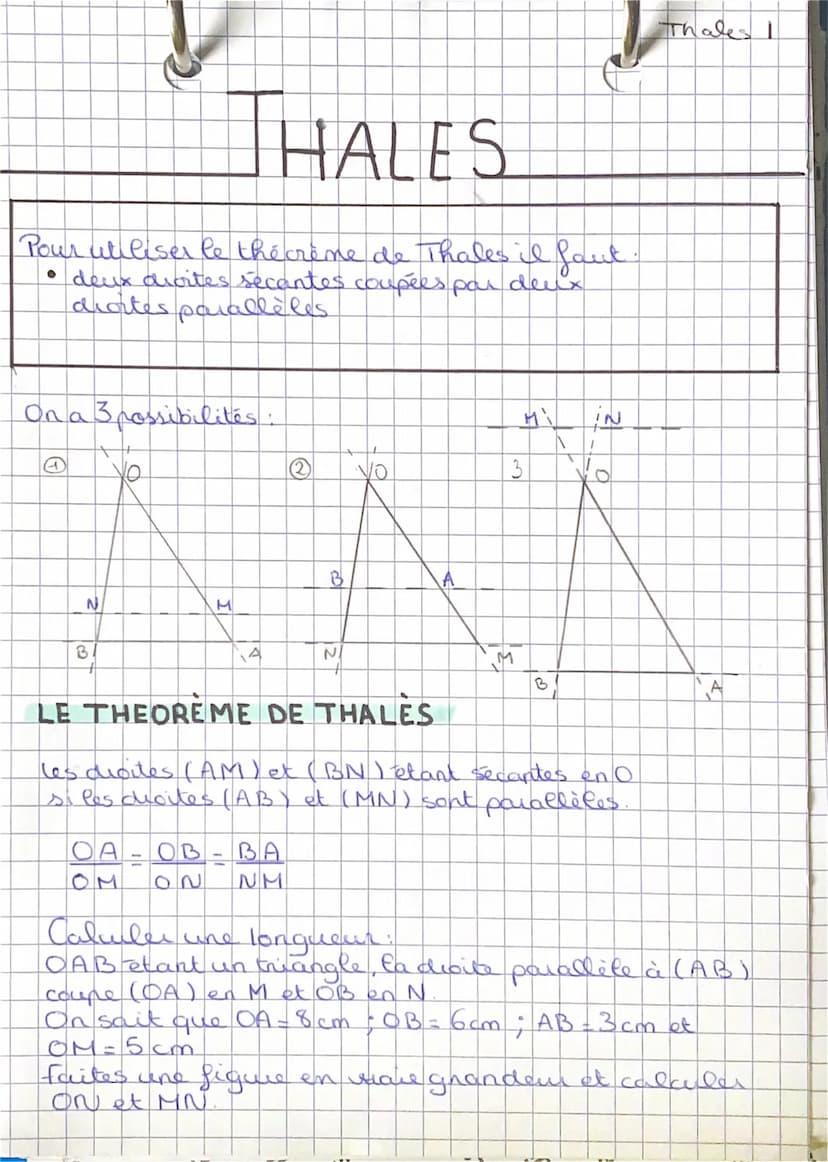 Thales 1
THALES
Pour utiliser le théorème de Thales il faut :
• deux droites sécantes coupées par deux
droites parallèles
On a 3 possibilités :
① O N M B A
② O B A N M
3 M N O B A
LE THEORÈME DE THALÈS
les droites (AM) et (BN) étant sécantes en O
si les droites (AB) et (MN) sont parallèles.
OA/OM = OB/ON = BA/NM
Calculer une longueur :
OAB étant un triangle, la droite parallèle à (AB)
coupe (OA) en M et OB en N.
On sait que OA = 8cm ; OB = 6cm ; AB = 3cm et
OM = 5cm
faites une figure en vraie grandeur et calculer
ON et MN.